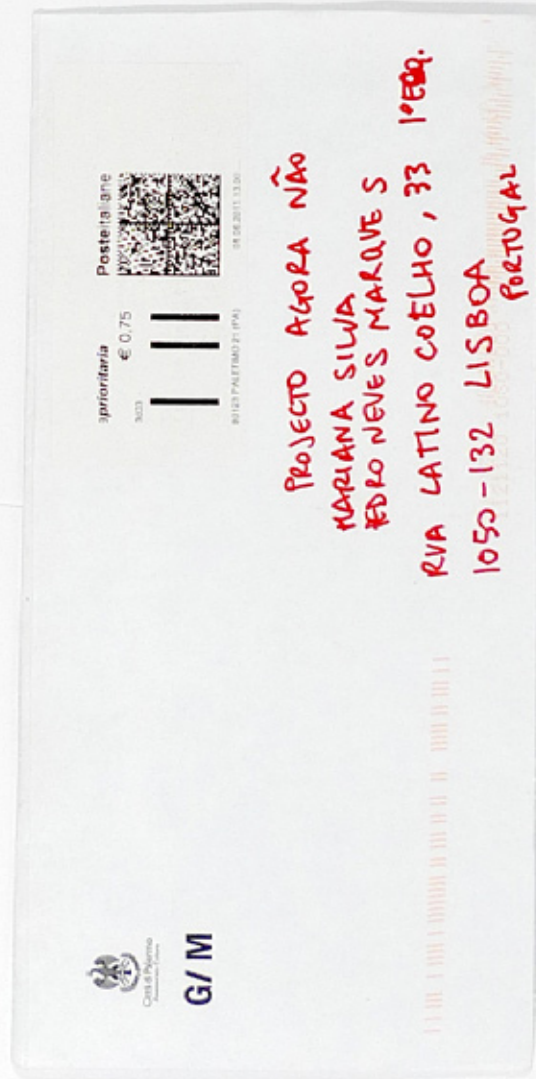 Città di Palermo
G/ M
prioritaria
Posteitaliane
€ 0,75
08.06.2011 13.00
PROJECTO AGORA NÃO
MARIANA SILVA
PEDRO NEVES MARQUES
RUA LATINO COELHO, 33 1º ESQ.
1050-132 LISBOA
PORTUGAL